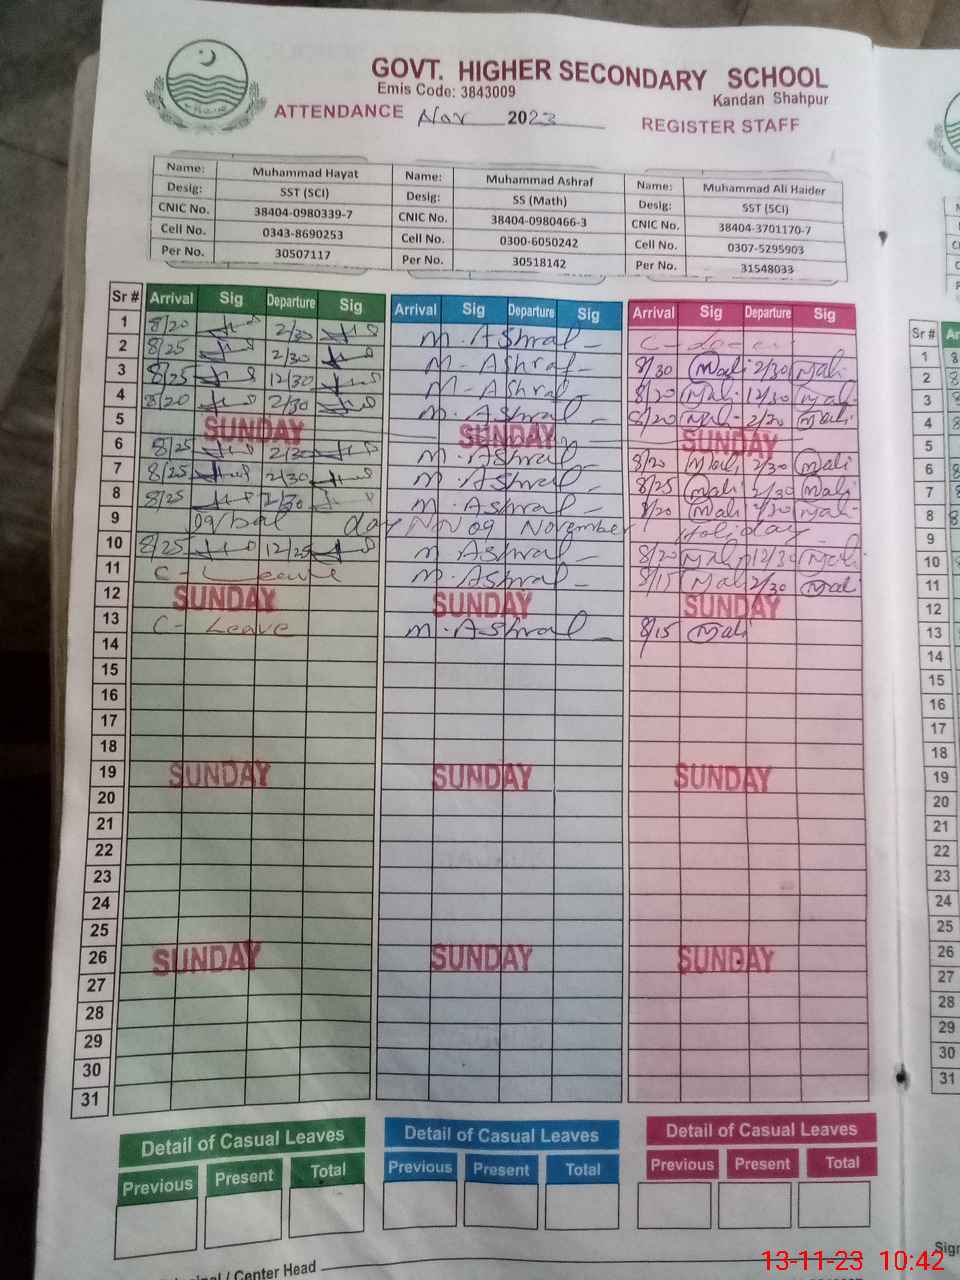 GOVT. HIGHER SECONDARY SCHOOL
Emis Code: 3843009
Kandan Shahpur
ATTENDANCE Nov 2023 REGISTER STAFF
Name: Muhammad Hayat Name: Muhammad Ashraf Name: Muhammad Ali Haider
Desig: SST (SCI) Desig: SS (Math) Desig: SST (SCI)
CNIC No. 38404-0980339-7 CNIC No. 38404-0980466-3 CNIC No. 38404-3701170-7
Cell No. 0343-8690253 Cell No. 0300-6050242 Cell No. 0307-5295903
Per No. 30507117 Per No. 30518142 Per No. 31548033
Sr # Arrival Sig Departure Sig Arrival Sig Departure Sig Arrival Sig Departure Sig Sr #
1 8/20 2/30 M. Ashraf 1
2 8/25 2/30 M. Ashraf 8/30 Mali 2/30 Mali 2
3 8/25 12/30 M. Ashraf 8/20 Mali 12/30 Mali 3
4 8/20 2/30 M. Ashraf 8/20 Mali 2/20 Mali 4
5 SUNDAY SUNDAY SUNDAY 5
6 8/25 2/30 M. Ashraf 8/20 Mali 2/30 Mali 6
7 8/25 2/30 M. Ashraf 8/25 Mali 2/30 Mali 7
8 8/25 2/30 M. Ashraf 8/20 Mali 2/30 Mali 8
9 Iqbal day 09 November Holiday 9
10 8/25 12/25 M. Ashraf 8/20 Mali 12/30 Mali 10
11 C-Leave M. Ashraf 8/15 Mali 2/30 Mali 11
12 SUNDAY SUNDAY SUNDAY 12
13 C-Leave M. Ashraf 8/15 Mali 13
14 14
15 15
16 16
17 17
18 18
19 SUNDAY SUNDAY SUNDAY 19
20 20
21 21
22 22
23 23
24 24
25 25
26 SUNDAY SUNDAY SUNDAY 26
27 27
28 28
29 29
30 30
31 31
Detail of Casual Leaves Detail of Casual Leaves Detail of Casual Leaves
Previous Present Total Previous Present Total Previous Present Total
/ Center Head
13-11-23 10:42